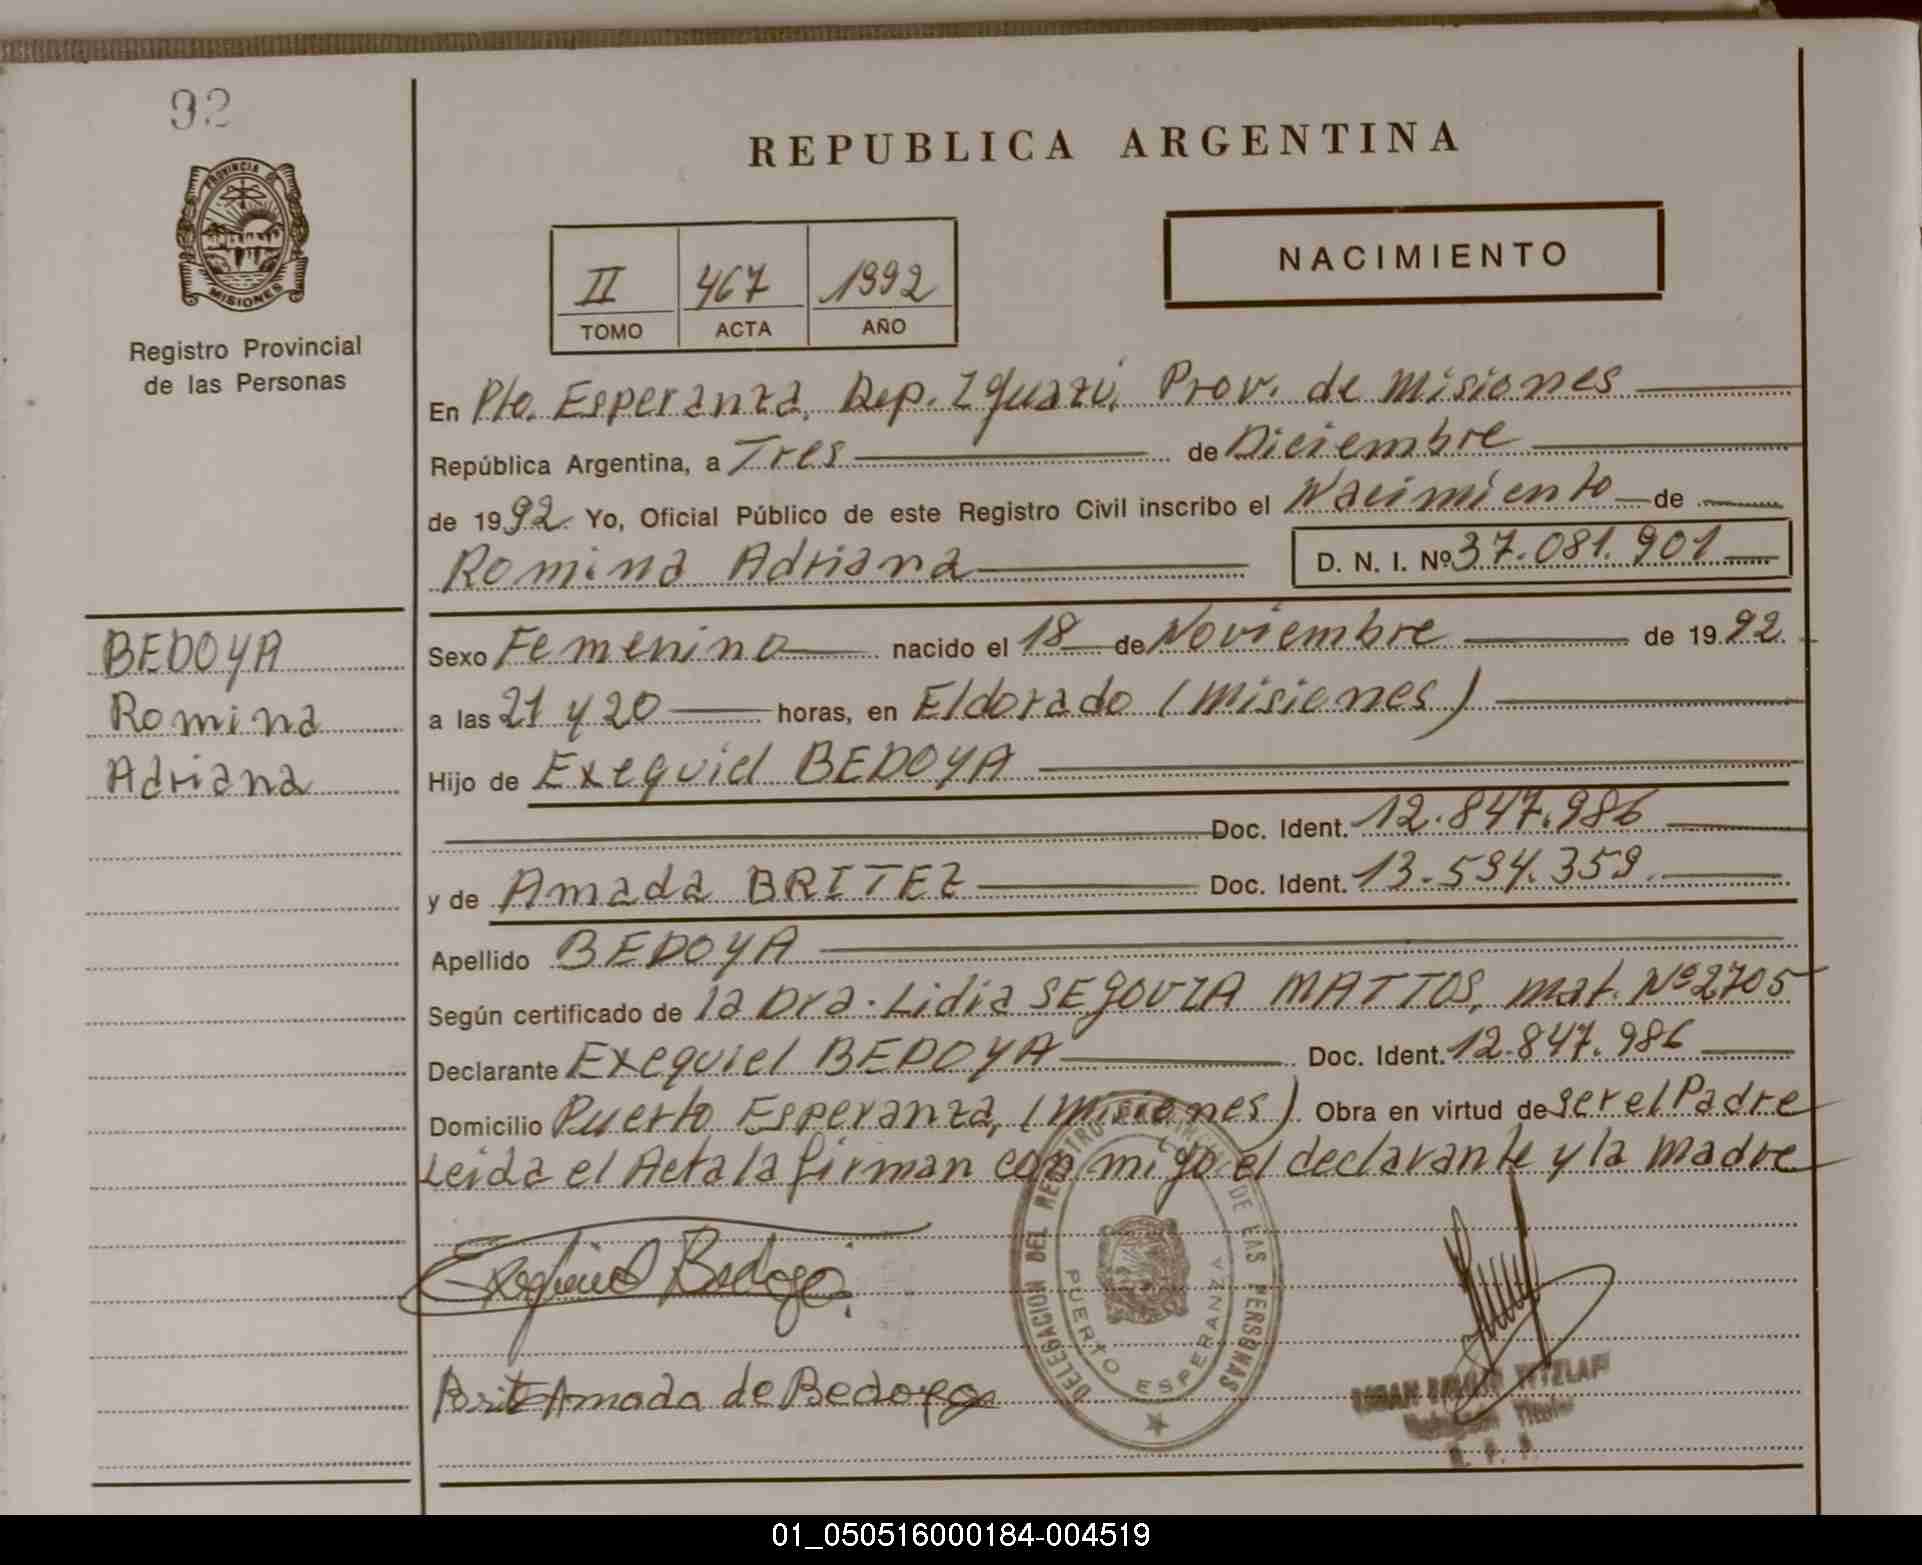 92
PROVINCIA DE
MISIONES
Registro Provincial
de las Personas
REPUBLICA ARGENTINA
NACIMIENTO
II 467 1992
TOMO ACTA AÑO
En Pto. Esperanza, Dep. Iguazú, Prov. de Misiones
República Argentina, a Tres de Diciembre
de 1992. Yo, Oficial Público de este Registro Civil inscribo el Nacimiento de
Romina Adriana D. N. I. Nº 37.081.901
BEDOYA
Romina
Adriana
Sexo Femenino nacido el 18 de Noviembre de 1992.
a las 21 y 20 horas, en Eldorado (Misiones)
Hijo de Exequiel BEDOYA
Doc. Ident. 12.847.986
y de Amada BRITEZ Doc. Ident. 13.594.359
Apellido BEDOYA
Según certificado de la Dra. Lidia SEGOVIA MATTOS, mat. Nº 2705
Declarante Exequiel BEDOYA Doc. Ident. 12.847.986
Domicilio Puerto Esperanza, (Misiones) Obra en virtud de ser el Padre
Leida el Acta la firman con migo el declarante y la madre
Exequiel Bedoya
Brite Amada de Bedoya
DELEGACION DEL REGISTRO PROVINCIAL DE LAS PERSONAS
PUERTO ESPERANZA
Titular
R. P. P.
01_050516000184-004519